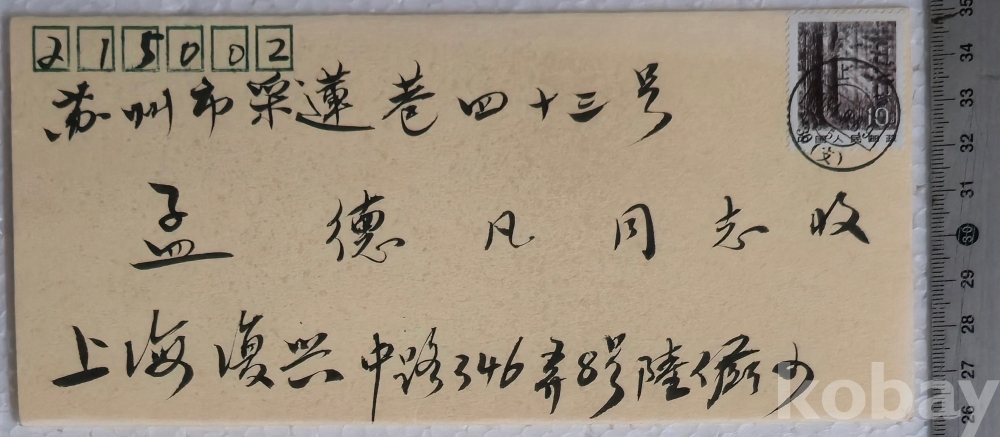 215002
苏州市采蓮巷四十三号
孟德凡同志收
上海復兴中路346弄8号陸
10
上
(文)
中国人民邮政
kobay
35
34
33
32
31
30
29
28
27
26